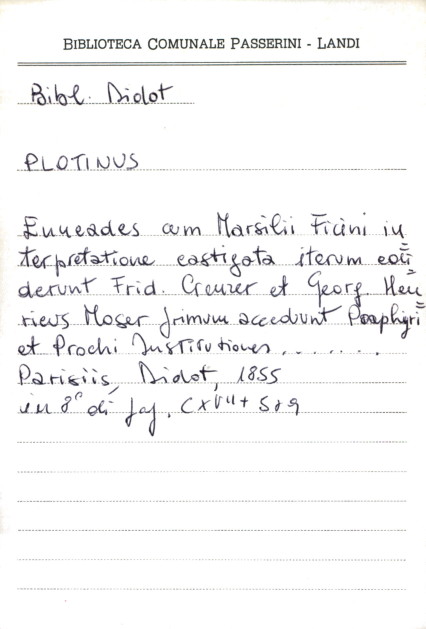 BIBLIOTECA COMUNALE PASSERINI - LANDI
Bibl. Didot
PLOTINUS
Enneades cum Marsilii Ficini in
terpretatione castigata iterum
derunt Frid. Creuzer et Georg. Hen
ricus Moser primum accedunt Porphyri
et Prochi Institutiones, . . . . . . .
Parisiis, Didot, 1855
in 8° di pag. CXVII +